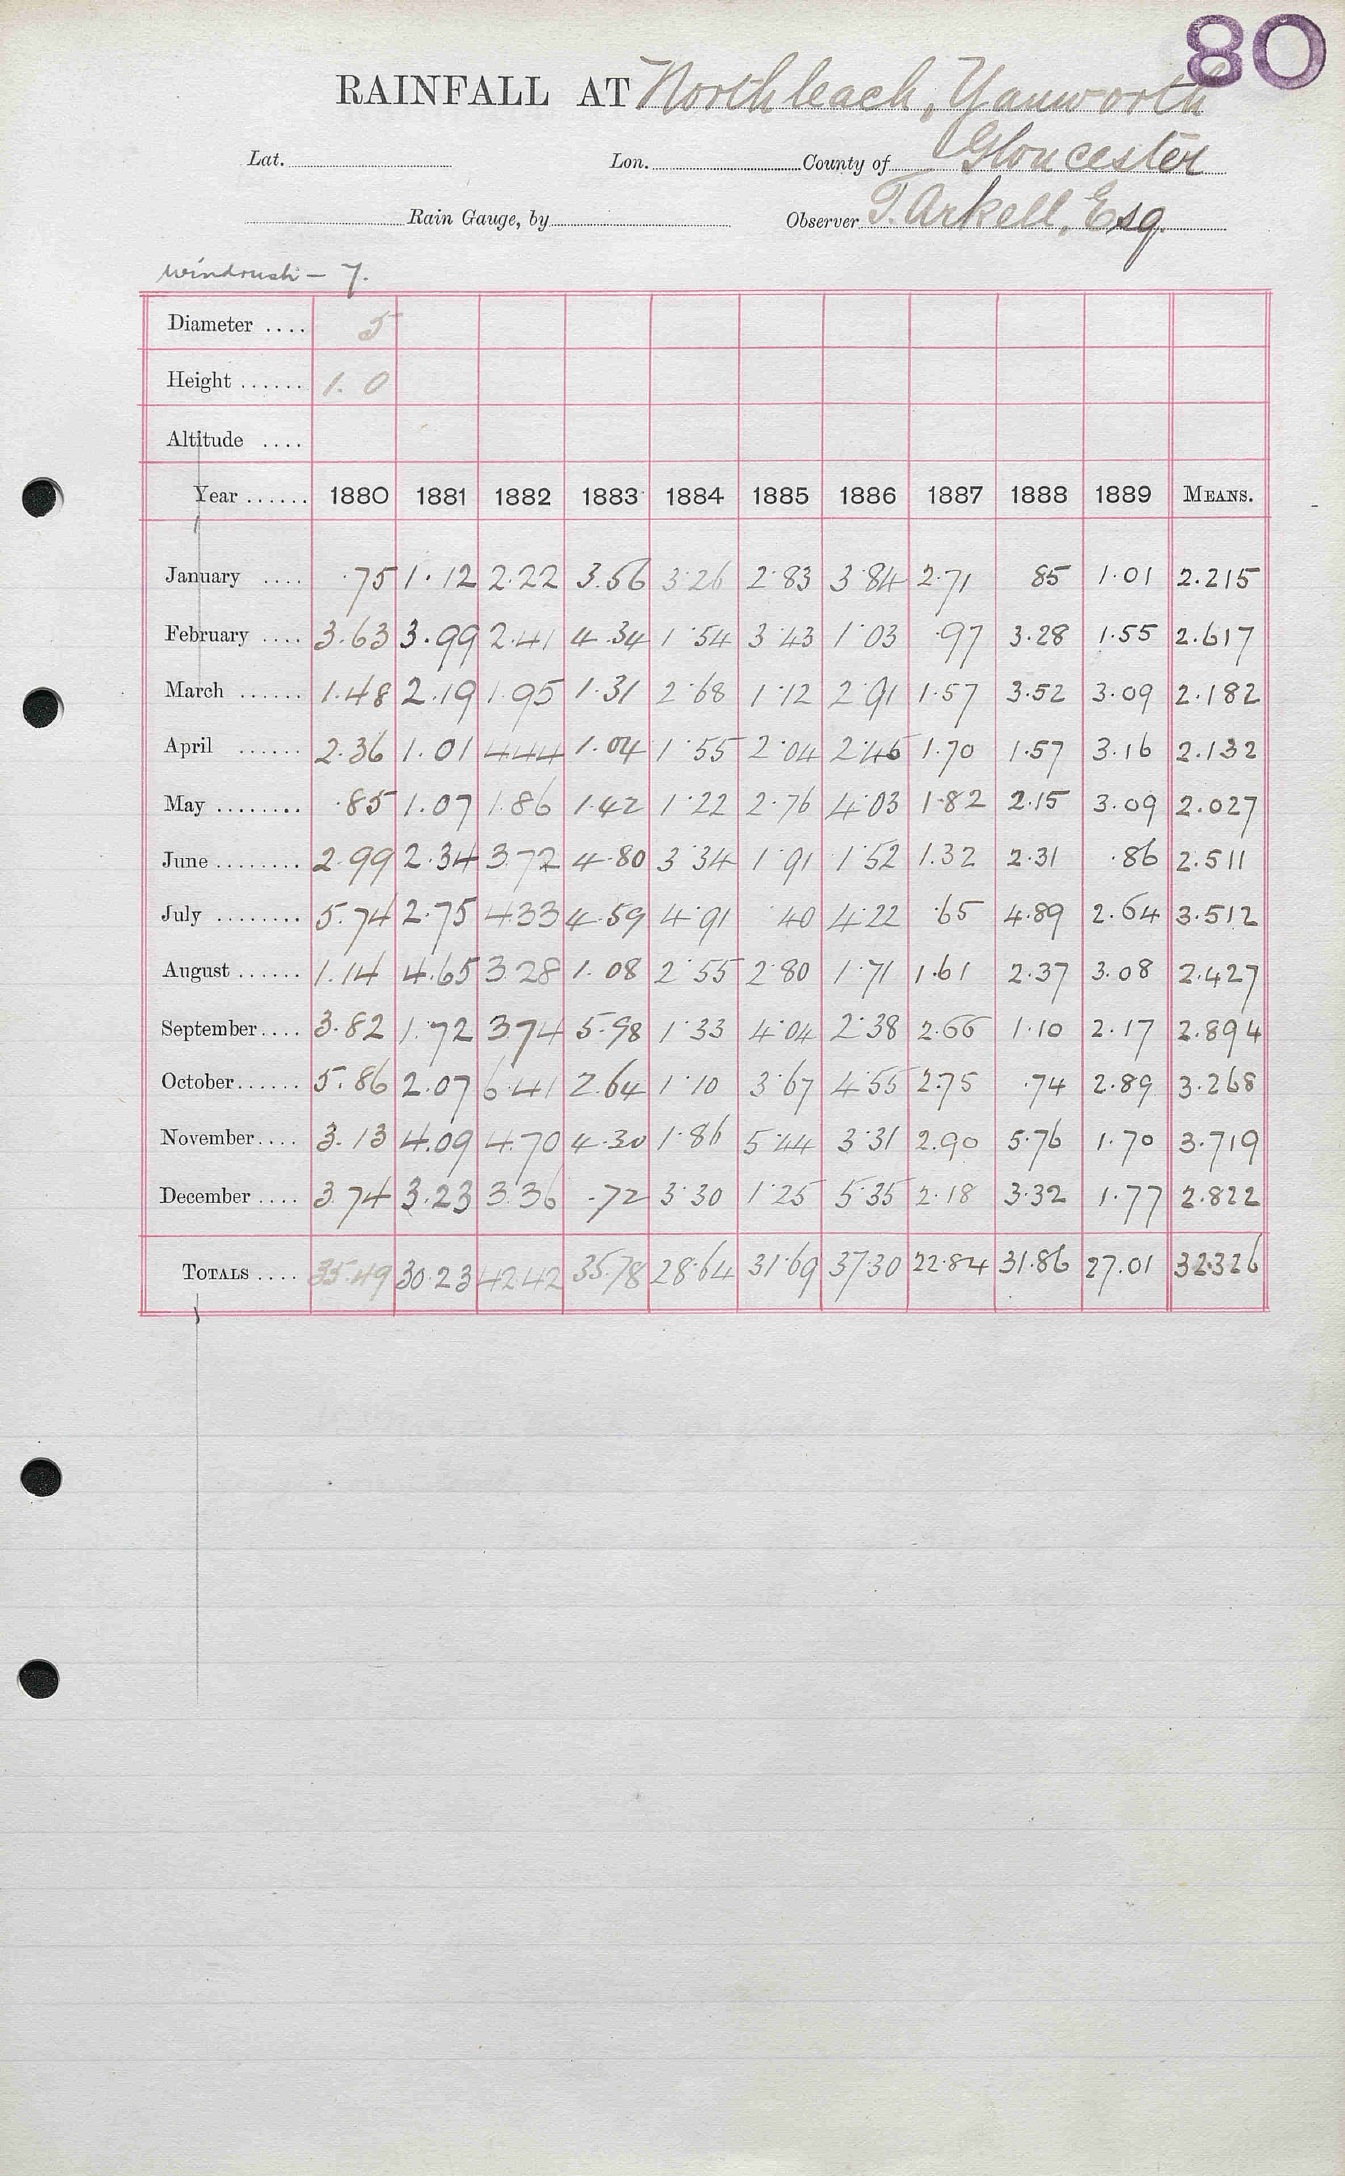 80
RAINFALL AT Northleach, Yanworth
Lat. Lon. County of Gloucester
Rain Gauge, by Observer T. Arkell, Esq.
Windrush – 7.
Diameter .... 5
Height ...... 1.0
Altitude ....
Year ...... 1880 1881 1882 1883 1884 1885 1886 1887 1888 1889 MEANS.
January .... .75 1.12 2.22 3.56 3.26 2.83 3.84 2.71 85 1.01 2.215
February .... 3.63 3.99 2.41 4.34 1.54 3.43 1.03 .97 3.28 1.55 2.617
March ...... 1.48 2.19 1.95 1.31 2.68 1.12 2.91 1.57 3.52 3.09 2.182
April ...... 2.36 1.01 4.44 1.04 1.55 2.04 2.46 1.70 1.57 3.16 2.132
May ........ .85 1.07 1.86 1.42 1.22 2.76 4.03 1.82 2.15 3.09 2.027
June ........ 2.99 2.34 3.72 4.80 3.34 1.91 1.52 1.32 2.31 .86 2.511
July ........ 5.74 2.75 4.33 4.59 4.91 .40 4.22 .65 4.89 2.64 3.512
August ...... 1.14 4.65 3.28 1.08 2.55 2.80 1.71 1.61 2.37 3.08 2.427
September .... 3.82 1.72 3.74 5.98 1.33 4.04 2.38 2.66 1.10 2.17 2.894
October ...... 5.86 2.07 6.41 2.64 1.10 3.67 4.55 2.75 .74 2.89 3.268
November .... 3.13 4.09 4.70 4.30 1.86 5.44 3.31 2.90 5.76 1.70 3.719
December .... 3.74 3.23 3.36 .72 3.30 1.25 5.35 2.18 3.32 1.77 2.822
TOTALS .... 35.49 30.23 42.42 35.78 28.64 31.69 37.30 22.84 31.86 27.01 32.326